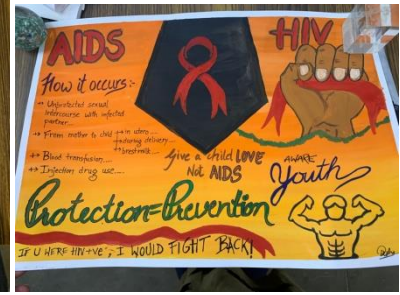 AIDS
HIV
How it occurs:-
→ Unprotected sexual
intercourse with infected
partner...
→ From mother to child → in utero...
→ during delivery...
→ breastmilk...
→ Blood transfusion...
→ Injection drug use...
give a child LOVE
Not AIDS
AWARE
Youth
Protection=Prevention
IF U WERE HIV+ve ; I WOULD FIGHT BACK!